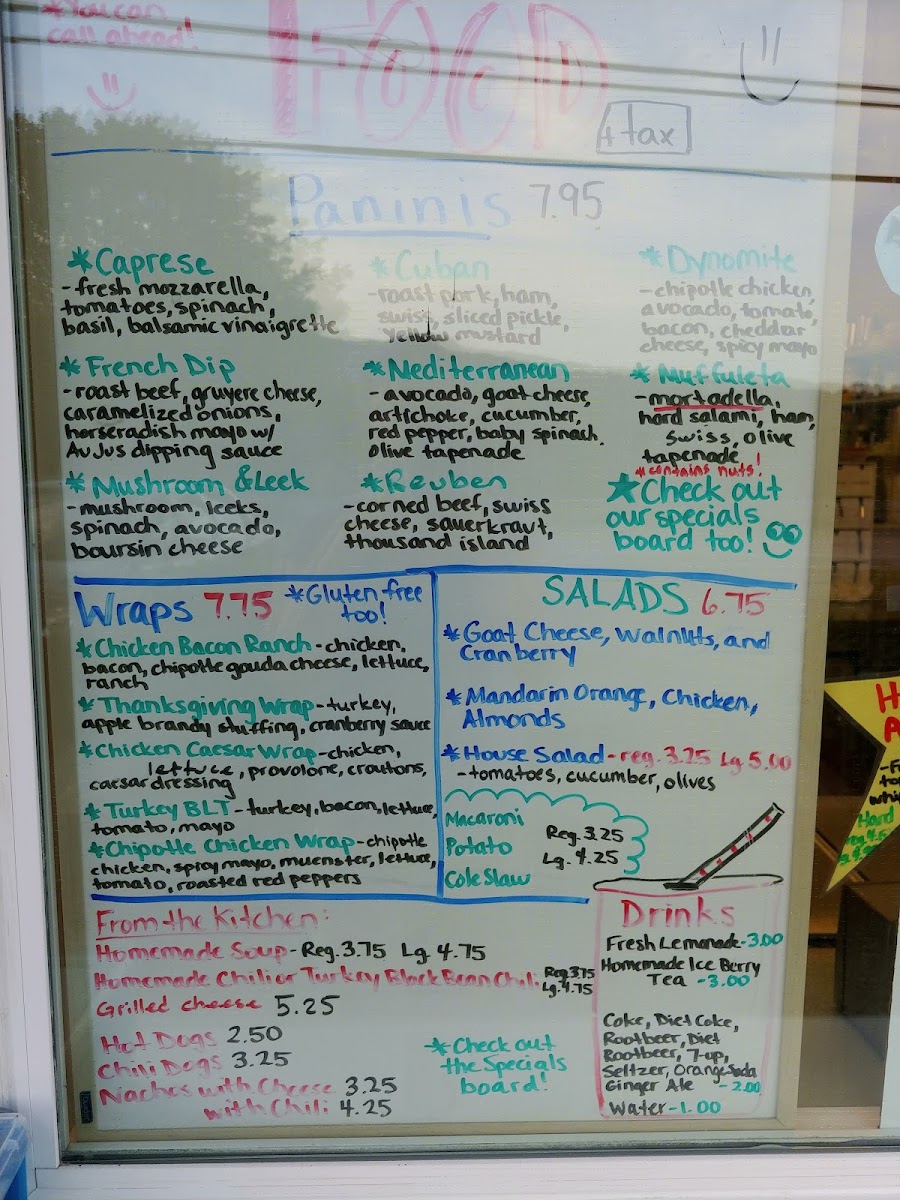 *You can
call ahead!
FOOD
+ tax
Paninis 7.95
*Caprese
-fresh mozzarella,
tomatoes, spinach,
basil, balsamic vinaigrette
*Cuban
-roast pork, ham,
swiss, sliced pickle,
yellow mustard
*Dynomite
-chipotle chicken,
avocado, tomato,
bacon, cheddar
cheese, spicy mayo
*French Dip
-roast beef, gruyere cheese,
caramelized onions,
horseradish mayo w/
Au Jus dipping sauce
*Mediterranean
-avocado, goat cheese,
artichoke, cucumber,
red pepper, baby spinach,
olive tapenade
*Muffuleta
-mortadella,
hard salami, ham,
swiss, olive
tapenade!
*contains nuts!
*Mushroom & Leek
-mushroom, leeks,
spinach, avocado,
boursin cheese
*Reuben
-corned beef, swiss
cheese, sauerkraut,
thousand island
*Check out
our specials
board too!
Wraps 7.75 *Gluten free
too!
*Chicken Bacon Ranch-chicken,
bacon, chipotle gouda cheese, lettuce,
ranch
*Thanksgiving Wrap-turkey,
apple brandy stuffing, cranberry sauce
*Chicken Caesar Wrap-chicken,
lettuce, provolone, croutons,
caesar dressing
*Turkey BLT-turkey, bacon, lettuce,
tomato, mayo
*Chipotle Chicken Wrap-chipotle
chicken, spicy mayo, muenster, lettuce,
tomato, roasted red peppers
SALADS 6.75
*Goat Cheese, Walnuts, and
Cranberry
*Mandarin Orange, Chicken,
Almonds
*House Salad-reg. 3.25 Lg 5.00
-tomatoes, cucumber, olives
Macaroni
Potato
Cole Slaw
Reg. 3.25
Lg. 4.25
From the Kitchen:
Homemade Soup-Reg. 3.75 Lg 4.75
Homemade Chili or Turkey Black Bean Chili Reg 3.75
Lg. 4.75
Grilled cheese 5.25
Hot Dogs 2.50
Chili Dogs 3.25
Nachos with Cheese 3.25
with Chili 4.25
*Check out
the Specials
board!
Drinks
Fresh Lemonade-3.00
Homemade Ice Berry
Tea -3.00
Coke, Diet Coke,
Rootbeer, Diet
Rootbeer, 7-up,
Seltzer, Orange Soda
Ginger Ale -2.00
Water-1.00